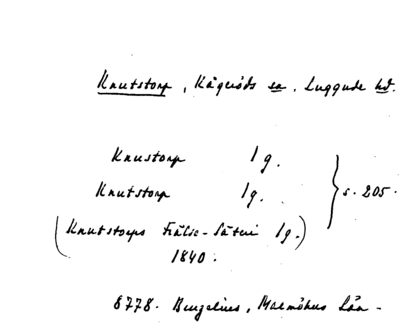 Knutstorp, Kågeröds sn. Luggude hd.
Knustorp 1 g.
Knutstorp 1 g. } s. 205.
(Knutstorps Frälse-Säteri 1 g.)
1840.
8778. Bengelius, Malmöhus Län.